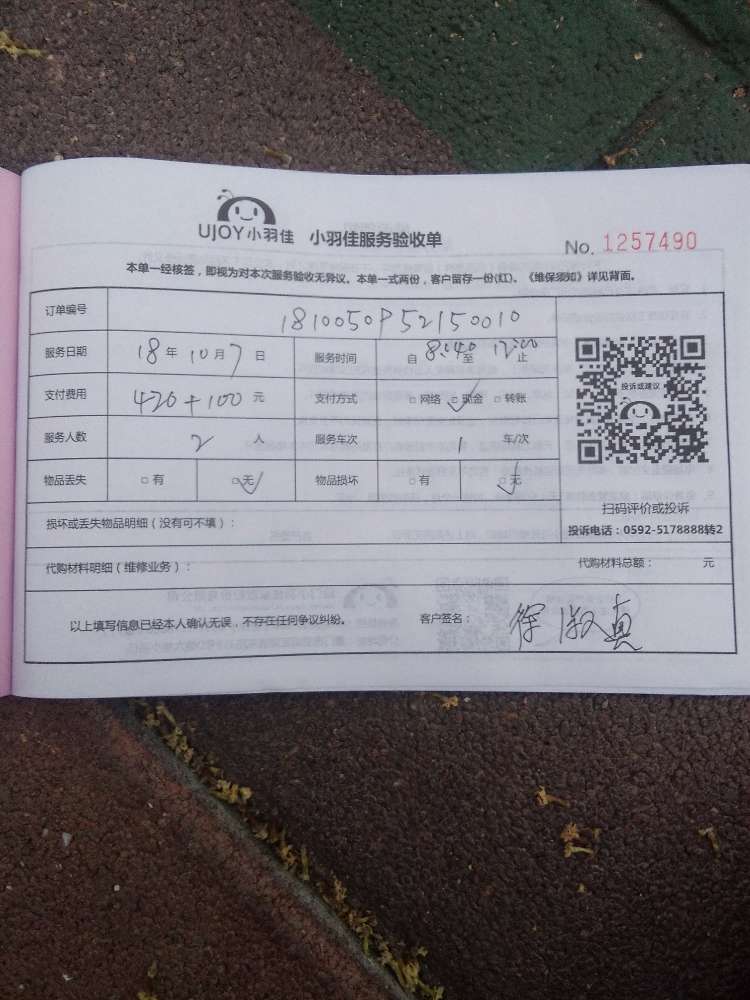 UJOY小羽佳 小羽佳服务验收单 No. 1257490
本单一经核签，即视为对本次服务验收无异议。本单一式两份，客户留存一份(红)。《维保须知》详见背面。
订单编号 1810050P52150010
服务日期 18年 10月 7日 服务时间 自 8:40 至 12:00 止
支付费用 420+100 元 支付方式 □网络 □现金 □转账
服务人数 2 人 服务车次 1 车/次
物品丢失 □有 □无 物品损坏 □有 □无
投诉或建议
扫码评价或投诉
投诉电话：0592-5178888转2
损坏或丢失物品明细（没有可不填）：
代购材料明细（维修业务）： 代购材料总额： 元
以上填写信息已经本人确认无误，不存在任何争议纠纷。 客户签名： 徐淑真